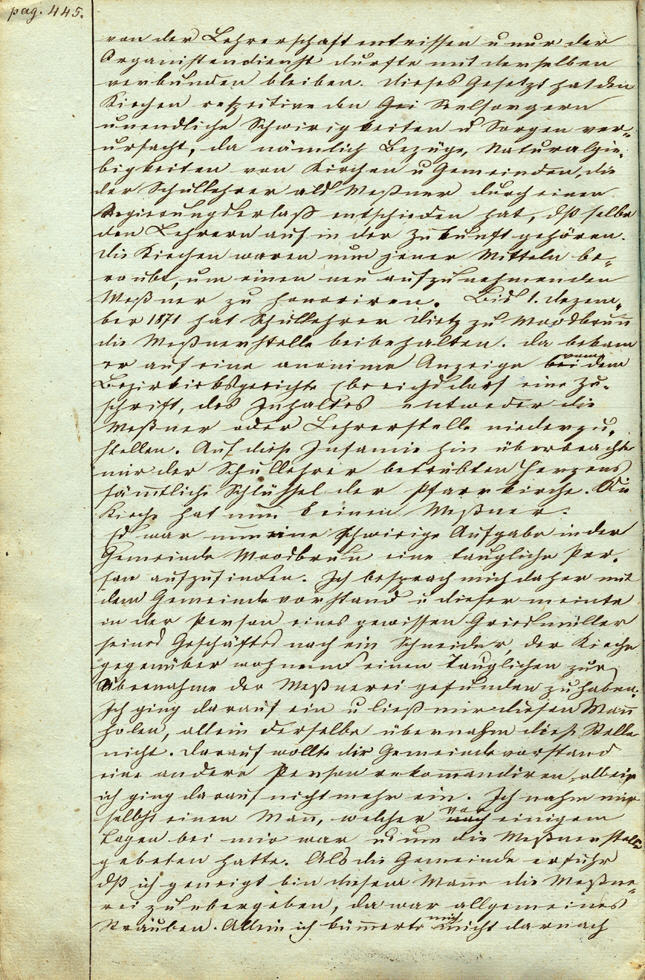 pag. 445.
von der Lehrerschaft entrissen u nur der
Organistendienst durfte mit derselben
verbunden bleiben. Dieses Gesetz hat den
Kirchen den Seelsorgern
unendliche Schwirigkeiten u Sorgen ver-
ursacht, da nämlich Bezüge, Naturalgie-
bigkeiten von Kirchen u Gemeinden, die
der Schullehrer als Meßner durch einen
Regierungserlaß entschieden hat, dß selbe
den Lehrern auch in der Zukunft gehören.
Die Kirchen waren nun jener Mitteln be-
raubt, um einen neu aufzunehmenden
Meßner zu honoriren. Bis 1. Dezem-
ber 1871 hat Schullehrer Dietz zu Moosbrunn
die Meßnerstelle beibehalten. Da bekam
er auf eine anonime Anzeige bei dem
Bezirks eine Zu-
schrift, des Inhaltes entweder die
Meßner oder Lehrerstelle niederzu-
stellen. Auf diese Infamie hin überbrachte
mir der Schullehrer betrübten Herzens
sämtliche Schlüssel der Pfarrkirche. Die
Kirche hat nun keinen Meßner.
Es war nun eine schwirige Aufgabe in der
Gemeinde Moosbrunn eine taugliche Per-
son aufzufinden. Ich besprach mich daher mit
dem Gemeindevorstand u dieser meinte
in der Person eines gewissen Griesmüller
seines Geschäfts nach ein Schneider, der Kirche
gegenüber wohnend einen Tauglichen zur
Übernahme der Meßnerei gefunden zu haben.
Ich ging darauf ein u ließ mir diesen Mann
holen, allein derselbe übernahm diese Stelle
nicht. Darauf wollte der Gemeindevorstand
eine andere Person rekommandiren, allein
ich ging darauf nicht mehr ein. Ich nahm mir
selbst einen Mann, welcher vor einigen
Tagen bei mir war u um die Meßnerstelle
gebeten hatte. Als die Gemeinde erfuhr
dß ich geneigt bin diesem Manne die Meßne-
rei zu übergeben, da war allgemeines
Sträuben. Allein ich kümmerte mich nicht darnach